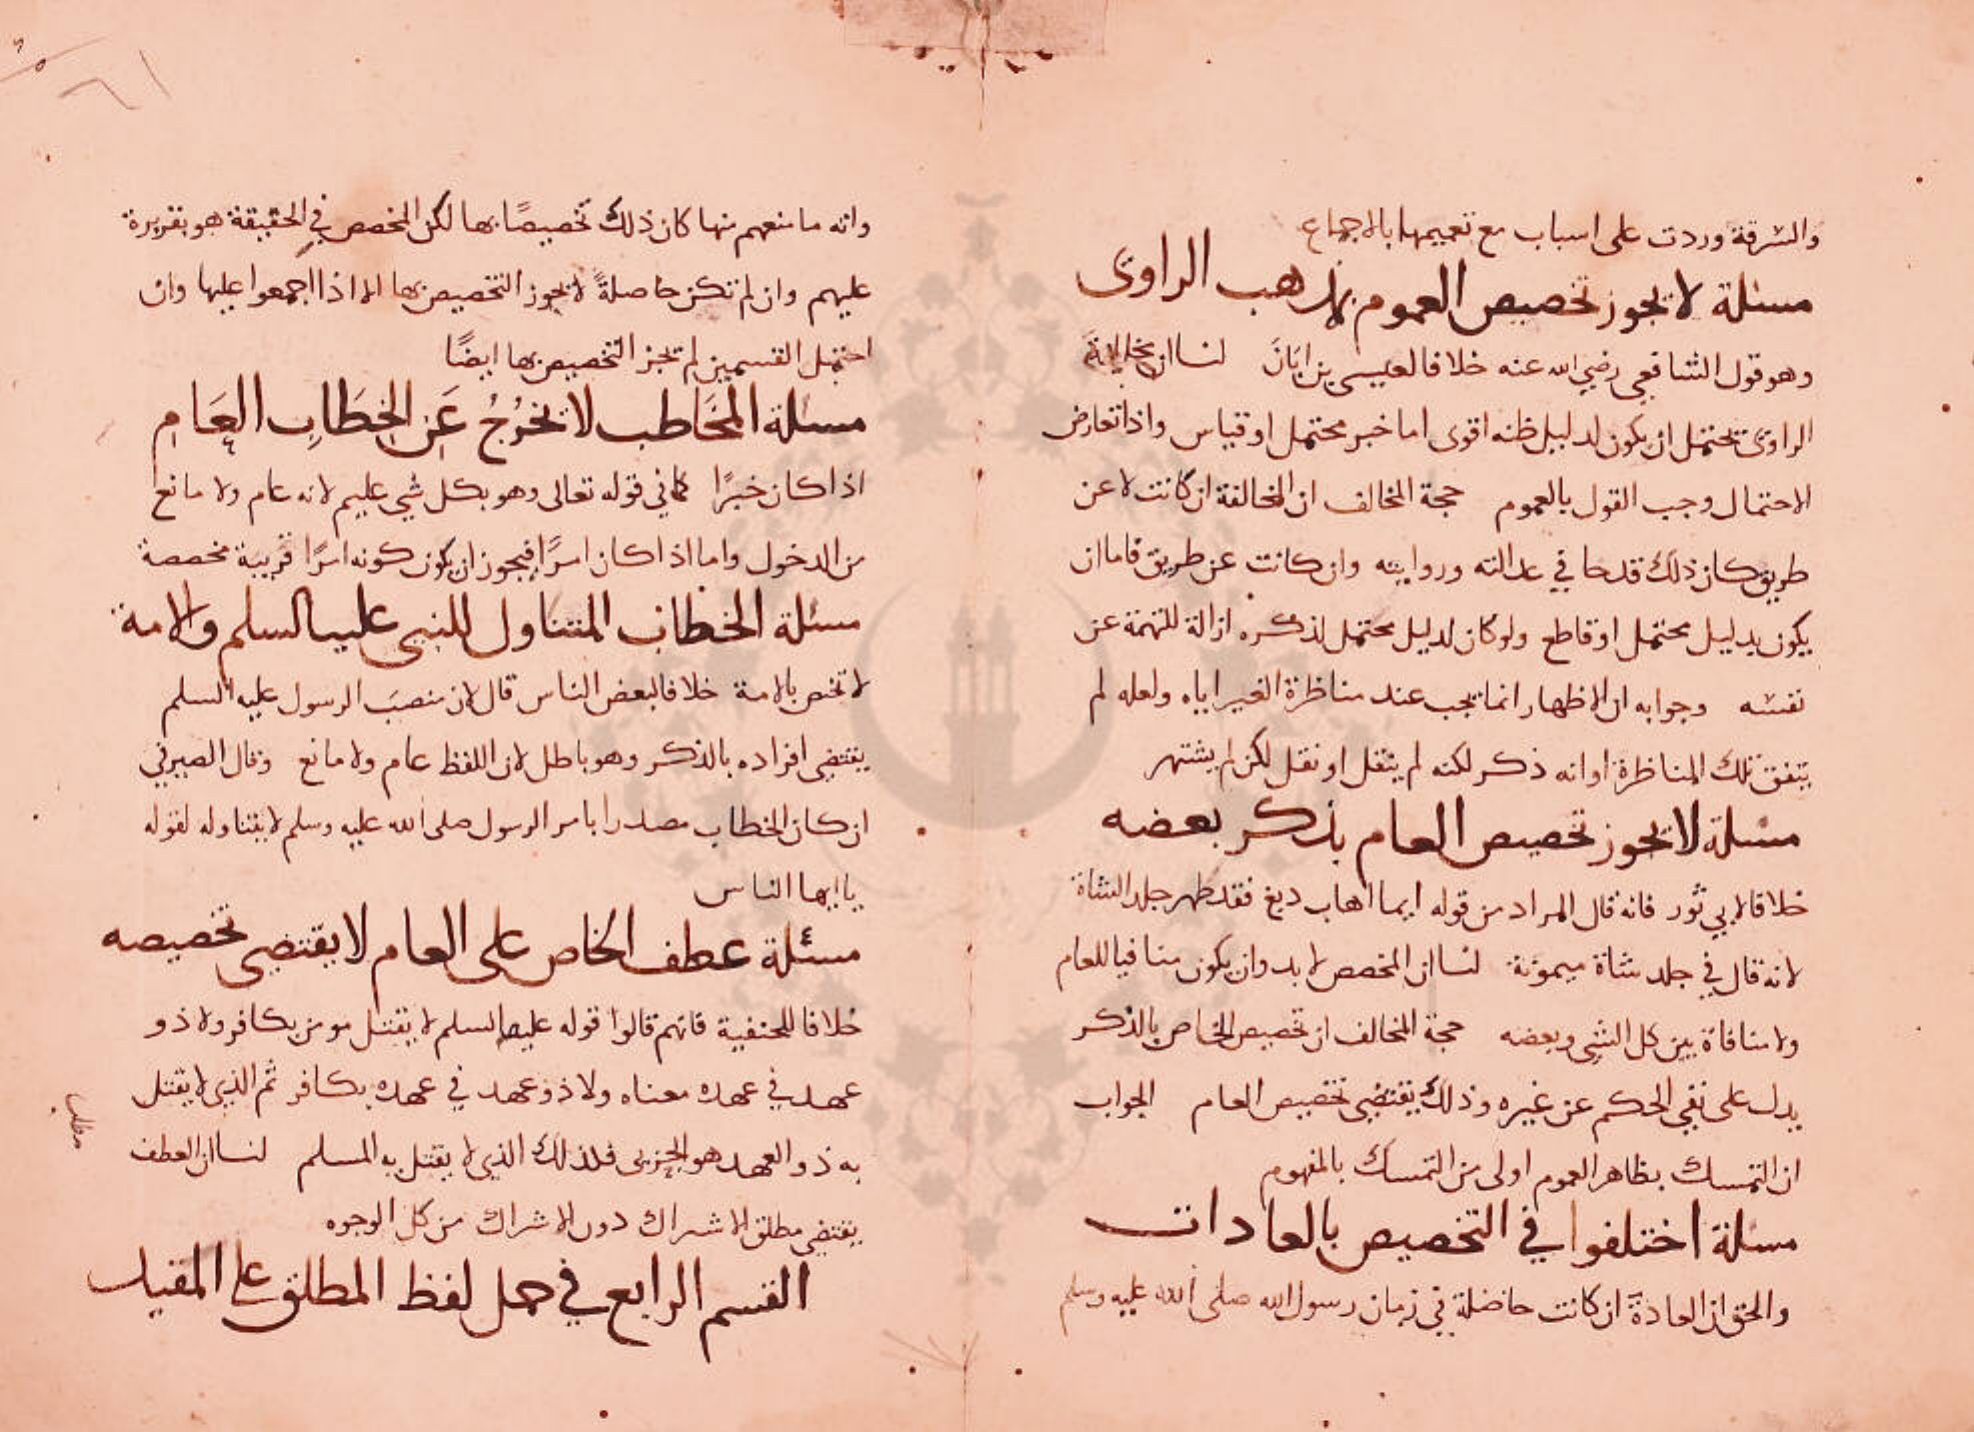 والسرقة وردت على اسباب مع تعميمها بالاجماع
مسئلة لا يجوز تخصيص العموم بمذهب الراوى
وهو قول الشافعي رضي الله عنه خلافا لعيسى بن ابان لنا ان
الراوى يحتمل ان يكون لدليل ظنه اقوى اما خبر محتمل او قياس واذا تعارض
الاحتمال وجب القول بالعموم حجة المخالف ان المخالفة ان كانت لا عن
طريق كان ذلك قدحا في عدالته وروايته وان كانت عن طريق فاما ان
يكون بدليل محتمل او قاطع ولو كان لدليل محتمل لذكره ازالة للتهمة عن
نفسه وجوابه ان الاظهار انما يجب عند مناظرة الغير اياه ولعله لم
يتفق تلك المناظرة او انه ذكر لكنه لم ينقل او نقل لكن لم يشتهر
مسئلة لا يجوز تخصيص العام بذكر بعضه
خلافا لابي ثور فانه قال المراد من قوله ايما اهاب دبغ فقد طهر جلد الشاة
لانه قال في جلد شاة ميمونة لنا ان المخصص لا بد وان يكون منافيا للعام
ولا منافاة بين كل الشي وبعضه حجة المخالف ان تخصيص الخاص بالذكر
يدل على نفي الحكم عن غيره وذلك يقتضى تخصيص العام الجواب
ان التمسك بظاهر العموم اولى من التمسك بالمفهوم
مسئلة اختلفوا في التخصيص بالعادات
والحق ان العادة ان كانت حاصلة في زمان رسول الله صلى الله عليه وسلم
وانه ما منعهم منها كان ذلك تخصيصًا بها لكن المخصص في الحقيقة هو تقريره
عليهم وان لم تكن حاصلةً لا يجوز التخصيص بها الا اذا اجمعوا عليها وان
احتمل القسمين لم تجز التخصيص بها ايضًا
مسئلة المخَاطب لا يخرُجُ عَن الخِطَابِ العَام
اذا كان خبرًا كما في قوله تعالى وهو بكل شي عليم لانه عام ولا مانع
من الدخول واما اذا كان امرًا فيجوز ان يكون كونه امرًا قرينة مخصصة
مسئلة الخطاب المتناول للنبي عليه السلم والامة
لا تختص بالامة خلافا لبعض الناس قال لان منصب الرسول عليه السلم
يقتضى افراده بالذكر وهو باطل لان اللفظ عام ولا مانع وقال الصيرفي
ان كان الخطاب مصدرا بامر الرسول صلى الله عليه وسلم لا يتناوله لقوله
يا ايها الناس
مسئلة عطف الخاص على العام لا يقتضى تخصيصه
خلافا للحنفية فانهم قالوا قوله عليه السلم لا يقتل مومن بكافر ولا ذو
عهد في عهده معناه ولا ذو عهد في عهده بكافر ثم الذي لا يقتل
به ذو العهد هو الحربى فلذلك الذي لا يقتل به المسلم لنا ان العطف
يقتضى مطلق الاشراك دون الاشراك من كل الوجوه
القسم الرابع في حمل لفظ المطلق على المقيد